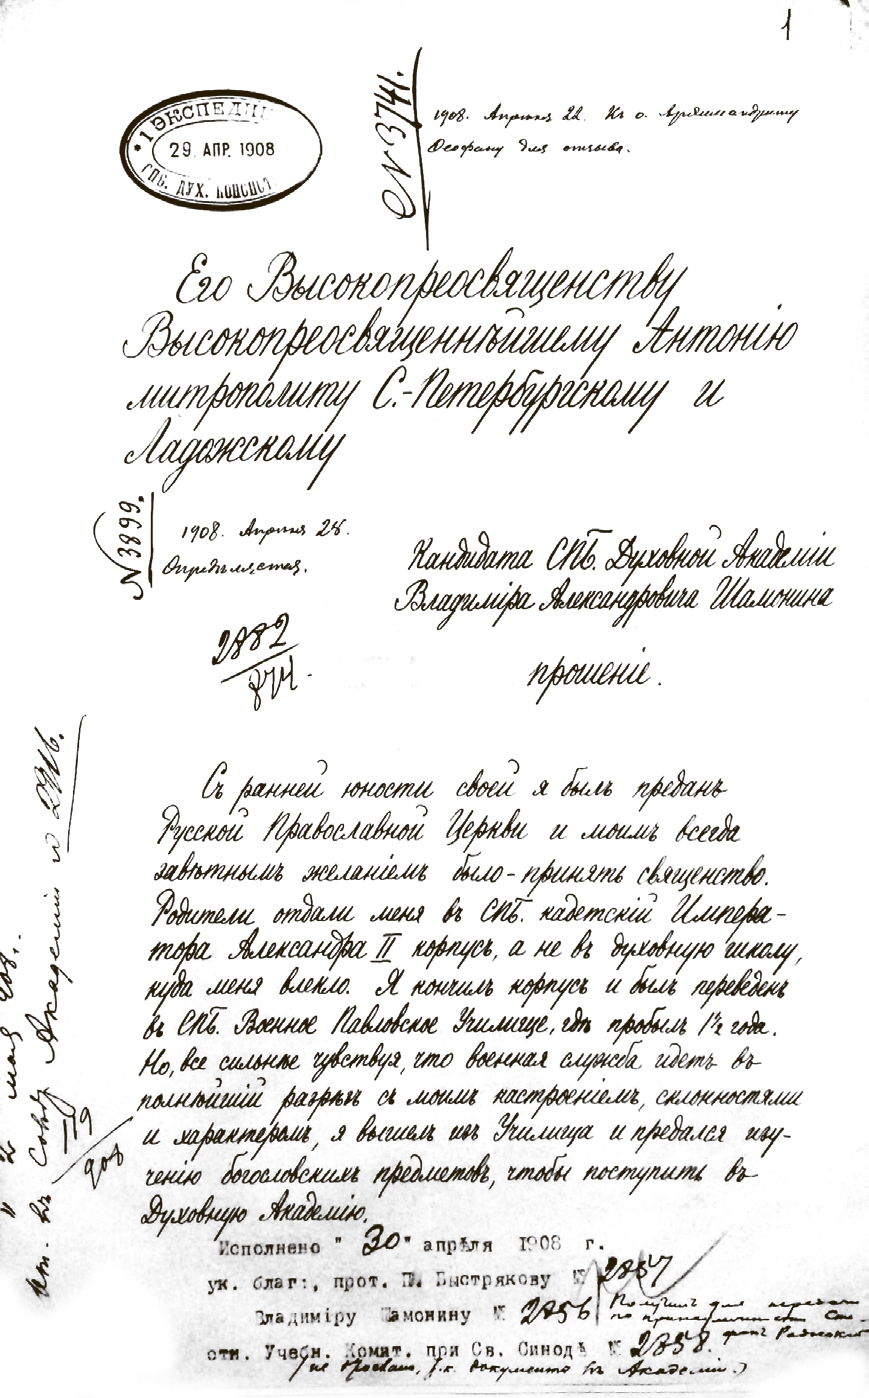 1
* 1 ЭКСПЕДИЦ
29. АПР. 1908
СПБ. ДУХ. КОНСИСТ.
№ 3741.
1908. Апрѣля 22. Къ о. Архимандриту
Ѳеофану для отзыва.
Его Высокопреосвященству
Высокопреосвященнѣйшему Антонію
митрополиту С.-Петербургскому и
Ладожскому
№ 3899.
1908. Апрѣля 28.
Опредѣляется.
Кандидата СПБ. Духовной Академіи
Владиміра Александровича Шамонина
прошеніе.
2882
Съ ранней юности своей я былъ преданъ
Русской Православной Церкви и моимъ всегда
завѣтнымъ желаніемъ было - принять священство.
Родители отдали меня въ СПБ. кадетскій Импера-
тора Александра II корпусъ, а не въ духовную школу,
куда меня влекло. Я кончилъ корпусъ и былъ переведенъ
въ СПБ. Военное Павловское Училище, гдѣ пробылъ 1½ года.
Но, все сильнѣе чувствуя, что военная служба идетъ въ
полнѣйшій разрѣзъ съ моимъ настроеніемъ, склонностями
и характеромъ, я вышелъ изъ Училища и предался изу-
ченію богословскихъ предметовъ, чтобы поступить въ
Духовную Академію.
От. въ Совѣт Академіи №
2 мая 908.
Исполнено " 30 " апрѣля 1908 г.
ук. благ:, прот. П. Быстрякову № 2857
Владиміру Шамонину № 2856
Получилъ для передачи
по принадлежности
отн. Учебн. Комит. при Св. Синодѣ № 2858.
(не послано, т.к. документы въ Академіи.)